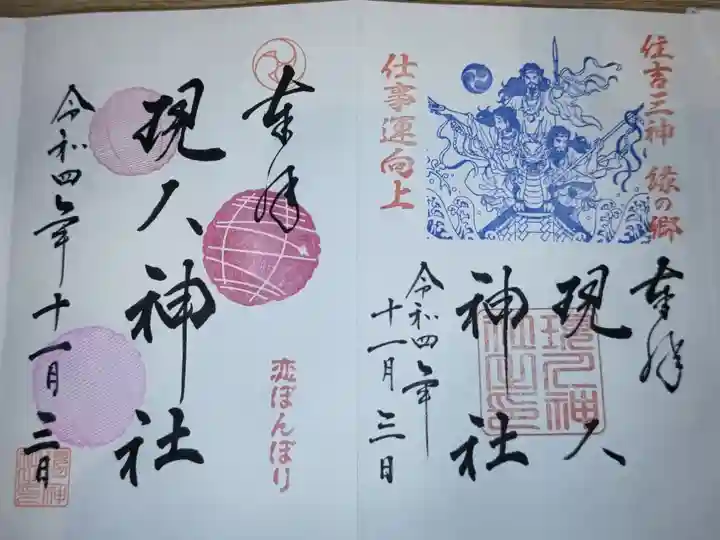 住吉三神 縁の郷
仕事運向上
奉拝
現人
神社
令和四年
十一月三日
現人神社之印
奉拝
現人神社
令和四年十一月三日
恋ぼんぼり